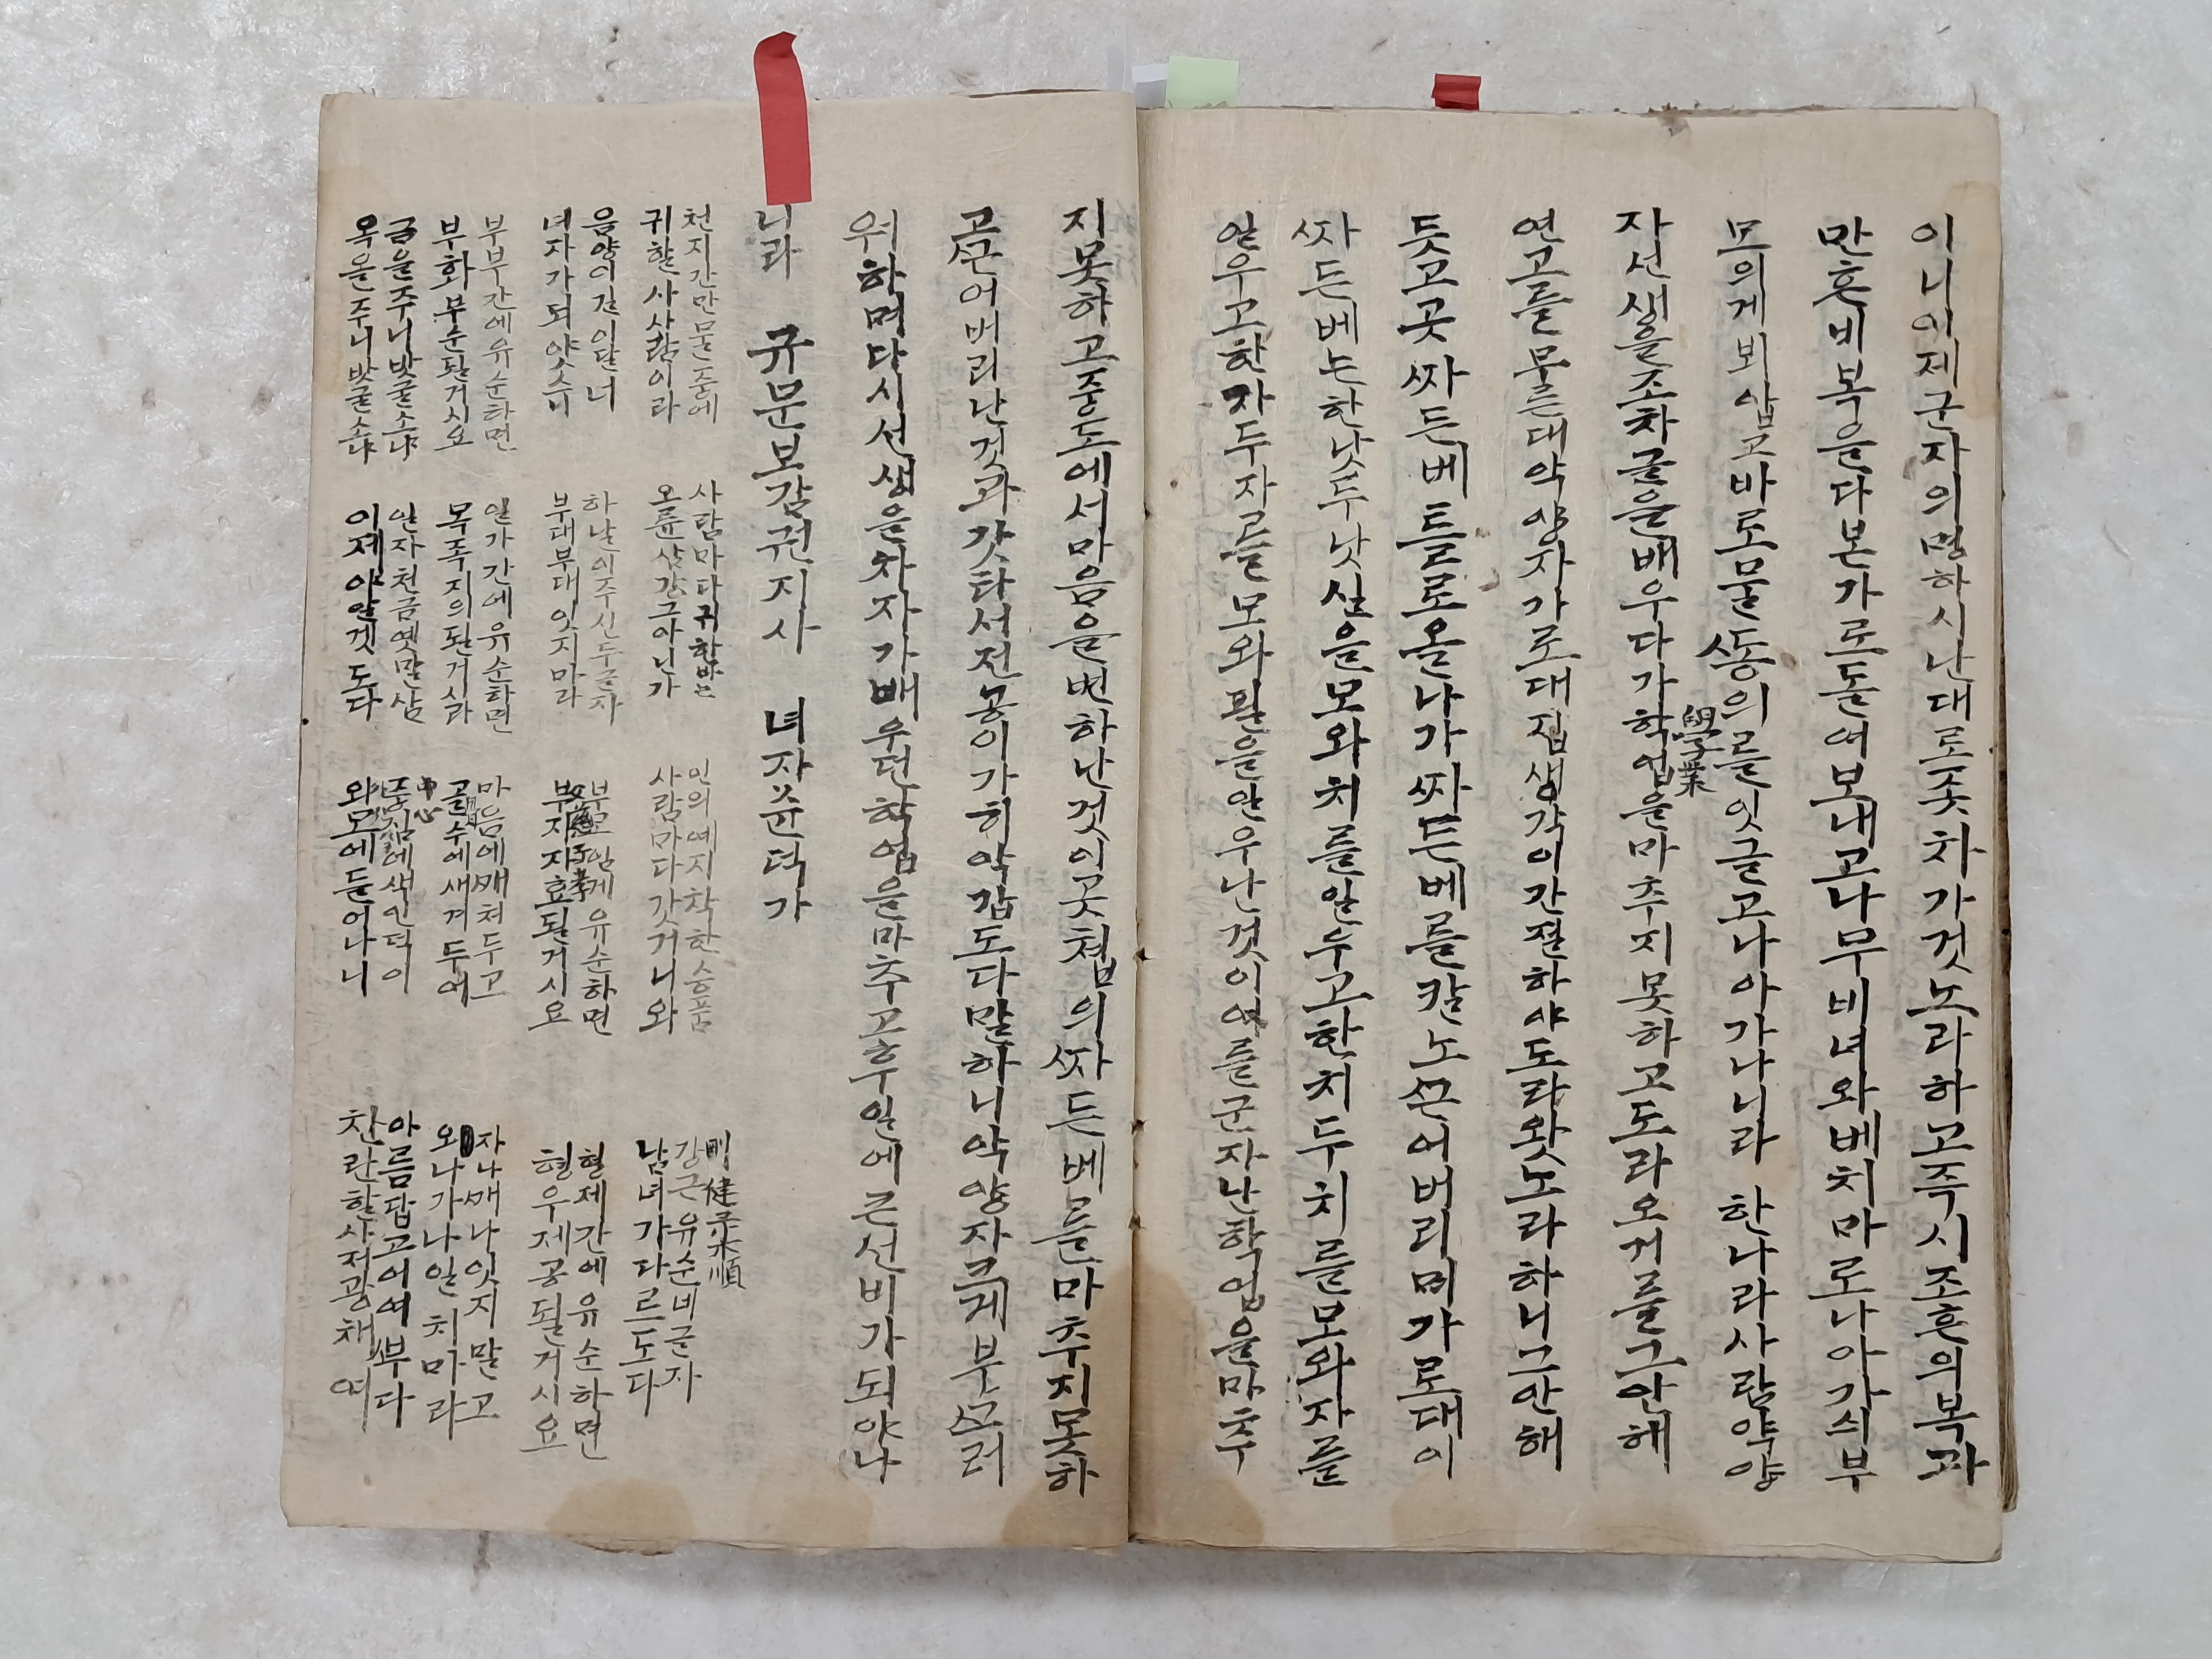 이니이제군자의명하시난대로좃차가것노라하고즉시조흔의복과
만흔비복을다본가로돌여보내고나무비녀와베치마로나아가싀부
모의게뵈압고바로물ᄯᅩᆼ의를잇글고나아가나니라 한나라사람악양
자선생을조차글을배우다가학업을마추지못하고도라오거를그안해
學業
연고를무른대악양자가로대집생각이간졀하야도라왓노라하니그안해
듯고곳ᄶᅡ든베틀로올나가ᄶᅡ든베를칼노ᄭᅳᆫ어버리며가로대이
ᄶᅡ든베는한낫두낫실을모와치를일우고한치두치를모와자를
일우고한자두자를모와필을일우난것이여를군자난학업을마추
지못하고중도에서마음을변하난것이곳쳡의ᄶᅡ든베를마추지못하
고ᄭᅳᆫ어버리난것과갓타서젼공이가히악갑도다말하니악양자크게부ᄭᅳ러
워하며다시선생을차자가배우던학업을마추고후일에큰선비가되야나
니라 규문보감권지사 녀자유슌덕가
천지간만물즁에 사람마다귀한바는 인의예지착한승품 강근유순네글자
剛健柔順
귀할사사람이라 오륜삼강그아닌가 사람마다갓거니와 남녀가다르도다
음양이건일탈너 하날이주신두글자 부모임게유순하면 형제간에유순하면
녀자가되얏스니 부대부대잇지마라 부자자효될거시요 형우제공될거시요
부부간에유순하면 일가간에유순하면 마음에깨쳐두고 자나깨나잇지말고
부화부순될거시요 목족지의될거시라 골수에새겨두여 오나가나일치마라
금을주니밧굴소냐 일자천금옛말삼 중심에색인덕이 아름답고어여부다
中心
옥을주니밧굴소냐 이제야알겟도다 외모에들어나니 찬란할사저광채여